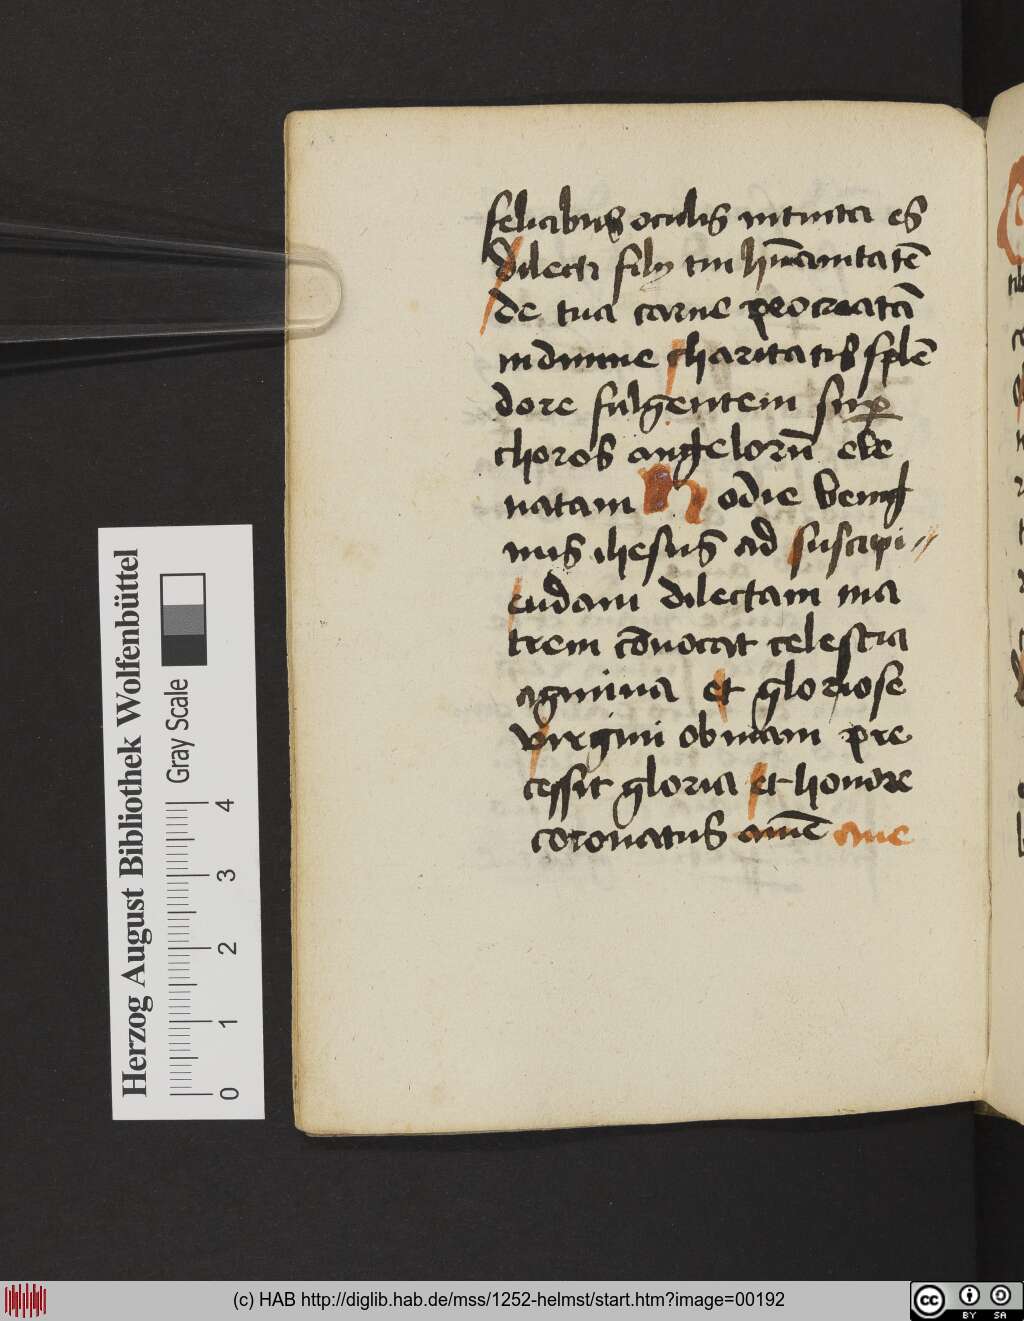 felicibus oculis intuita es
dilecti filij tui hūanitatē
de tua carne procreatā
in diuine charitatis splē
dore fulgentem sup̱
choros angelorū ele
uatam Hodie benig
nus ihesus ad suscipi〃
endam dilectam ma
trem cōuocat celestia
agmina et gloriose
virgini obuiam pre
cessit gloria et honore
coronatus amē aue
Herzog August Bibliothek Wolfenbüttel
Gray Scale
0 1 2 3 4
(c) HAB http://diglib.hab.de/mss/1252-helmst/start.htm?image=00192
cc BY SA